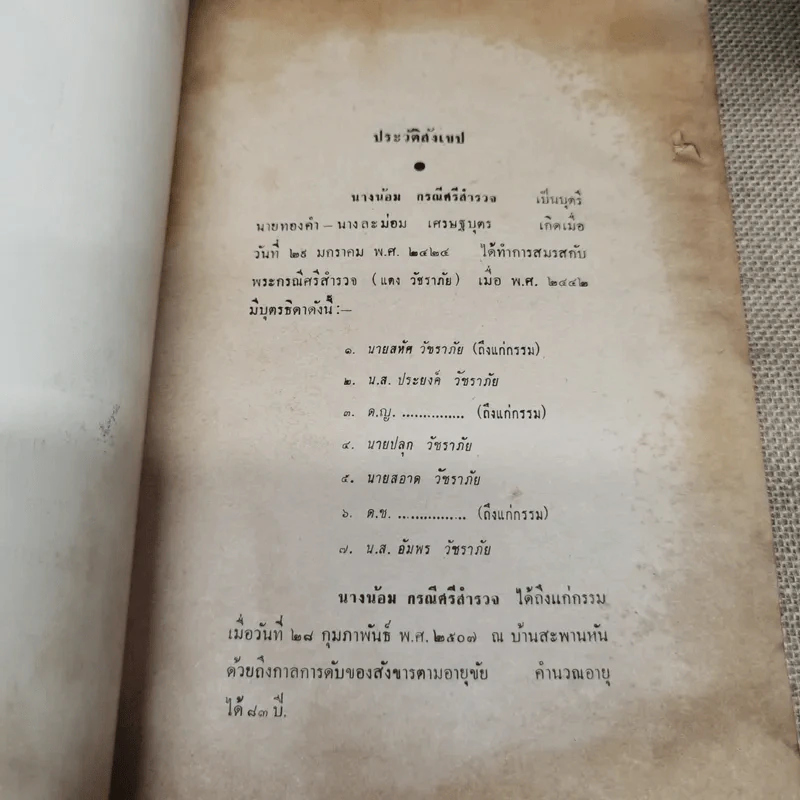 ประวัติสังเขป
นางน้อม กรณีศรีสำรวจ เป็นบุตรี
นายทองคำ – นางละม่อม เศรษฐบุตร เกิดเมื่อ
วันที่ ๒๙ มกราคม พ.ศ. ๒๔๒๔ ได้ทำการสมรสกับ
พระกรณีศรีสำรวจ (แดง วัชราภัย) เมื่อ พ.ศ. ๒๔๔๒
มีบุตรธิดาดังนี้ :–
๑. นายสหัศ วัชราภัย (ถึงแก่กรรม)
๒. น.ส. ประยงค์ วัชราภัย
๓. ด.ญ. ............... (ถึงแก่กรรม)
๔. นายปลุก วัชราภัย
๕. นายสอาด วัชราภัย
๖. ด.ช. ................ (ถึงแก่กรรม)
๗. น.ส. อัมพร วัชราภัย
นางน้อม กรณีศรีสำรวจ ได้ถึงแก่กรรม
เมื่อวันที่ ๒๘ กุมภาพันธ์ พ.ศ. ๒๕๐๗ ณ บ้านสะพานหัน
ด้วยถึงกาลการดับของสังขารตามอายุขัย คำนวณอายุ
ได้ ๘๓ ปี.